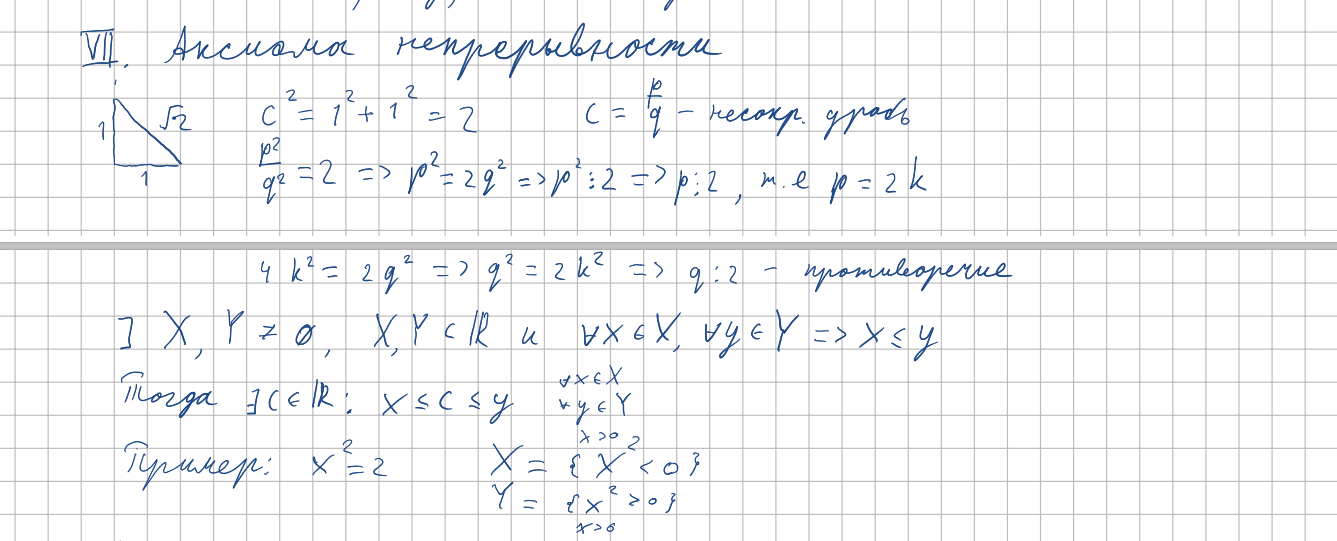 VII. Аксиома непрерывности
1 √2 1 c² = 1² + 1² = 2 c = p/q – несокр. дробь
p²/q² = 2 => p² = 2q² => p² ⋮ 2 => p ⋮ 2, т.е p = 2k
4k² = 2q² => q² = 2k² => q ⋮ 2 – противоречие
] X, Y ≠ ∅, X, Y ⊂ ℝ и ∀x ∈ X, ∀y ∈ Y => x ≤ y
Тогда ∃ c ∈ ℝ: x ≤ c ≤ y ∀x ∈ X ∀y ∈ Y
Пример: x² = 2 X = { x² < 0 } x>0
Y = { x² > 0 } x>0